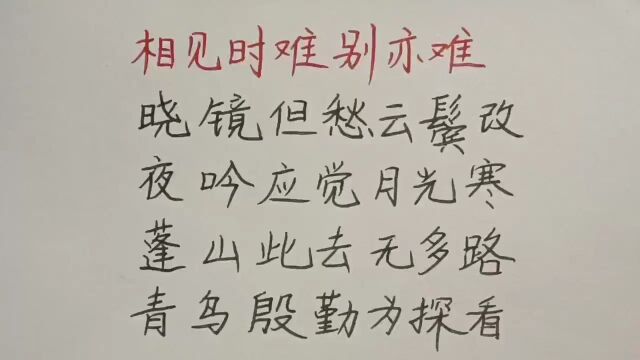 相见时难别亦难
晓镜但愁云鬓改
夜吟应觉月光寒
蓬山此去无多路
青鸟殷勤为探看